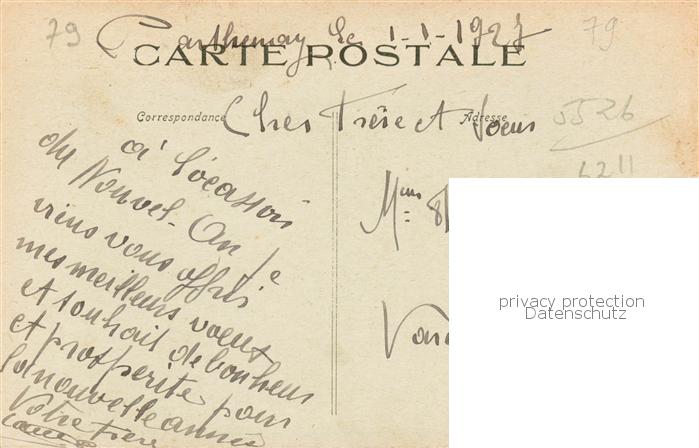 79
Parthenay le 1-1-1927
79
CARTE POSTALE
Correspondance
Adresse
Chers Frère et Soeur
5526
6211
à l'ocassion
du Nouvel-An Je
viens vous offrir
mes meilleurs voeux
et souhait de bonheur
et prosperite pour
la nouvelle année
Votre Frère
Mme
privacy protection
Datenschutz